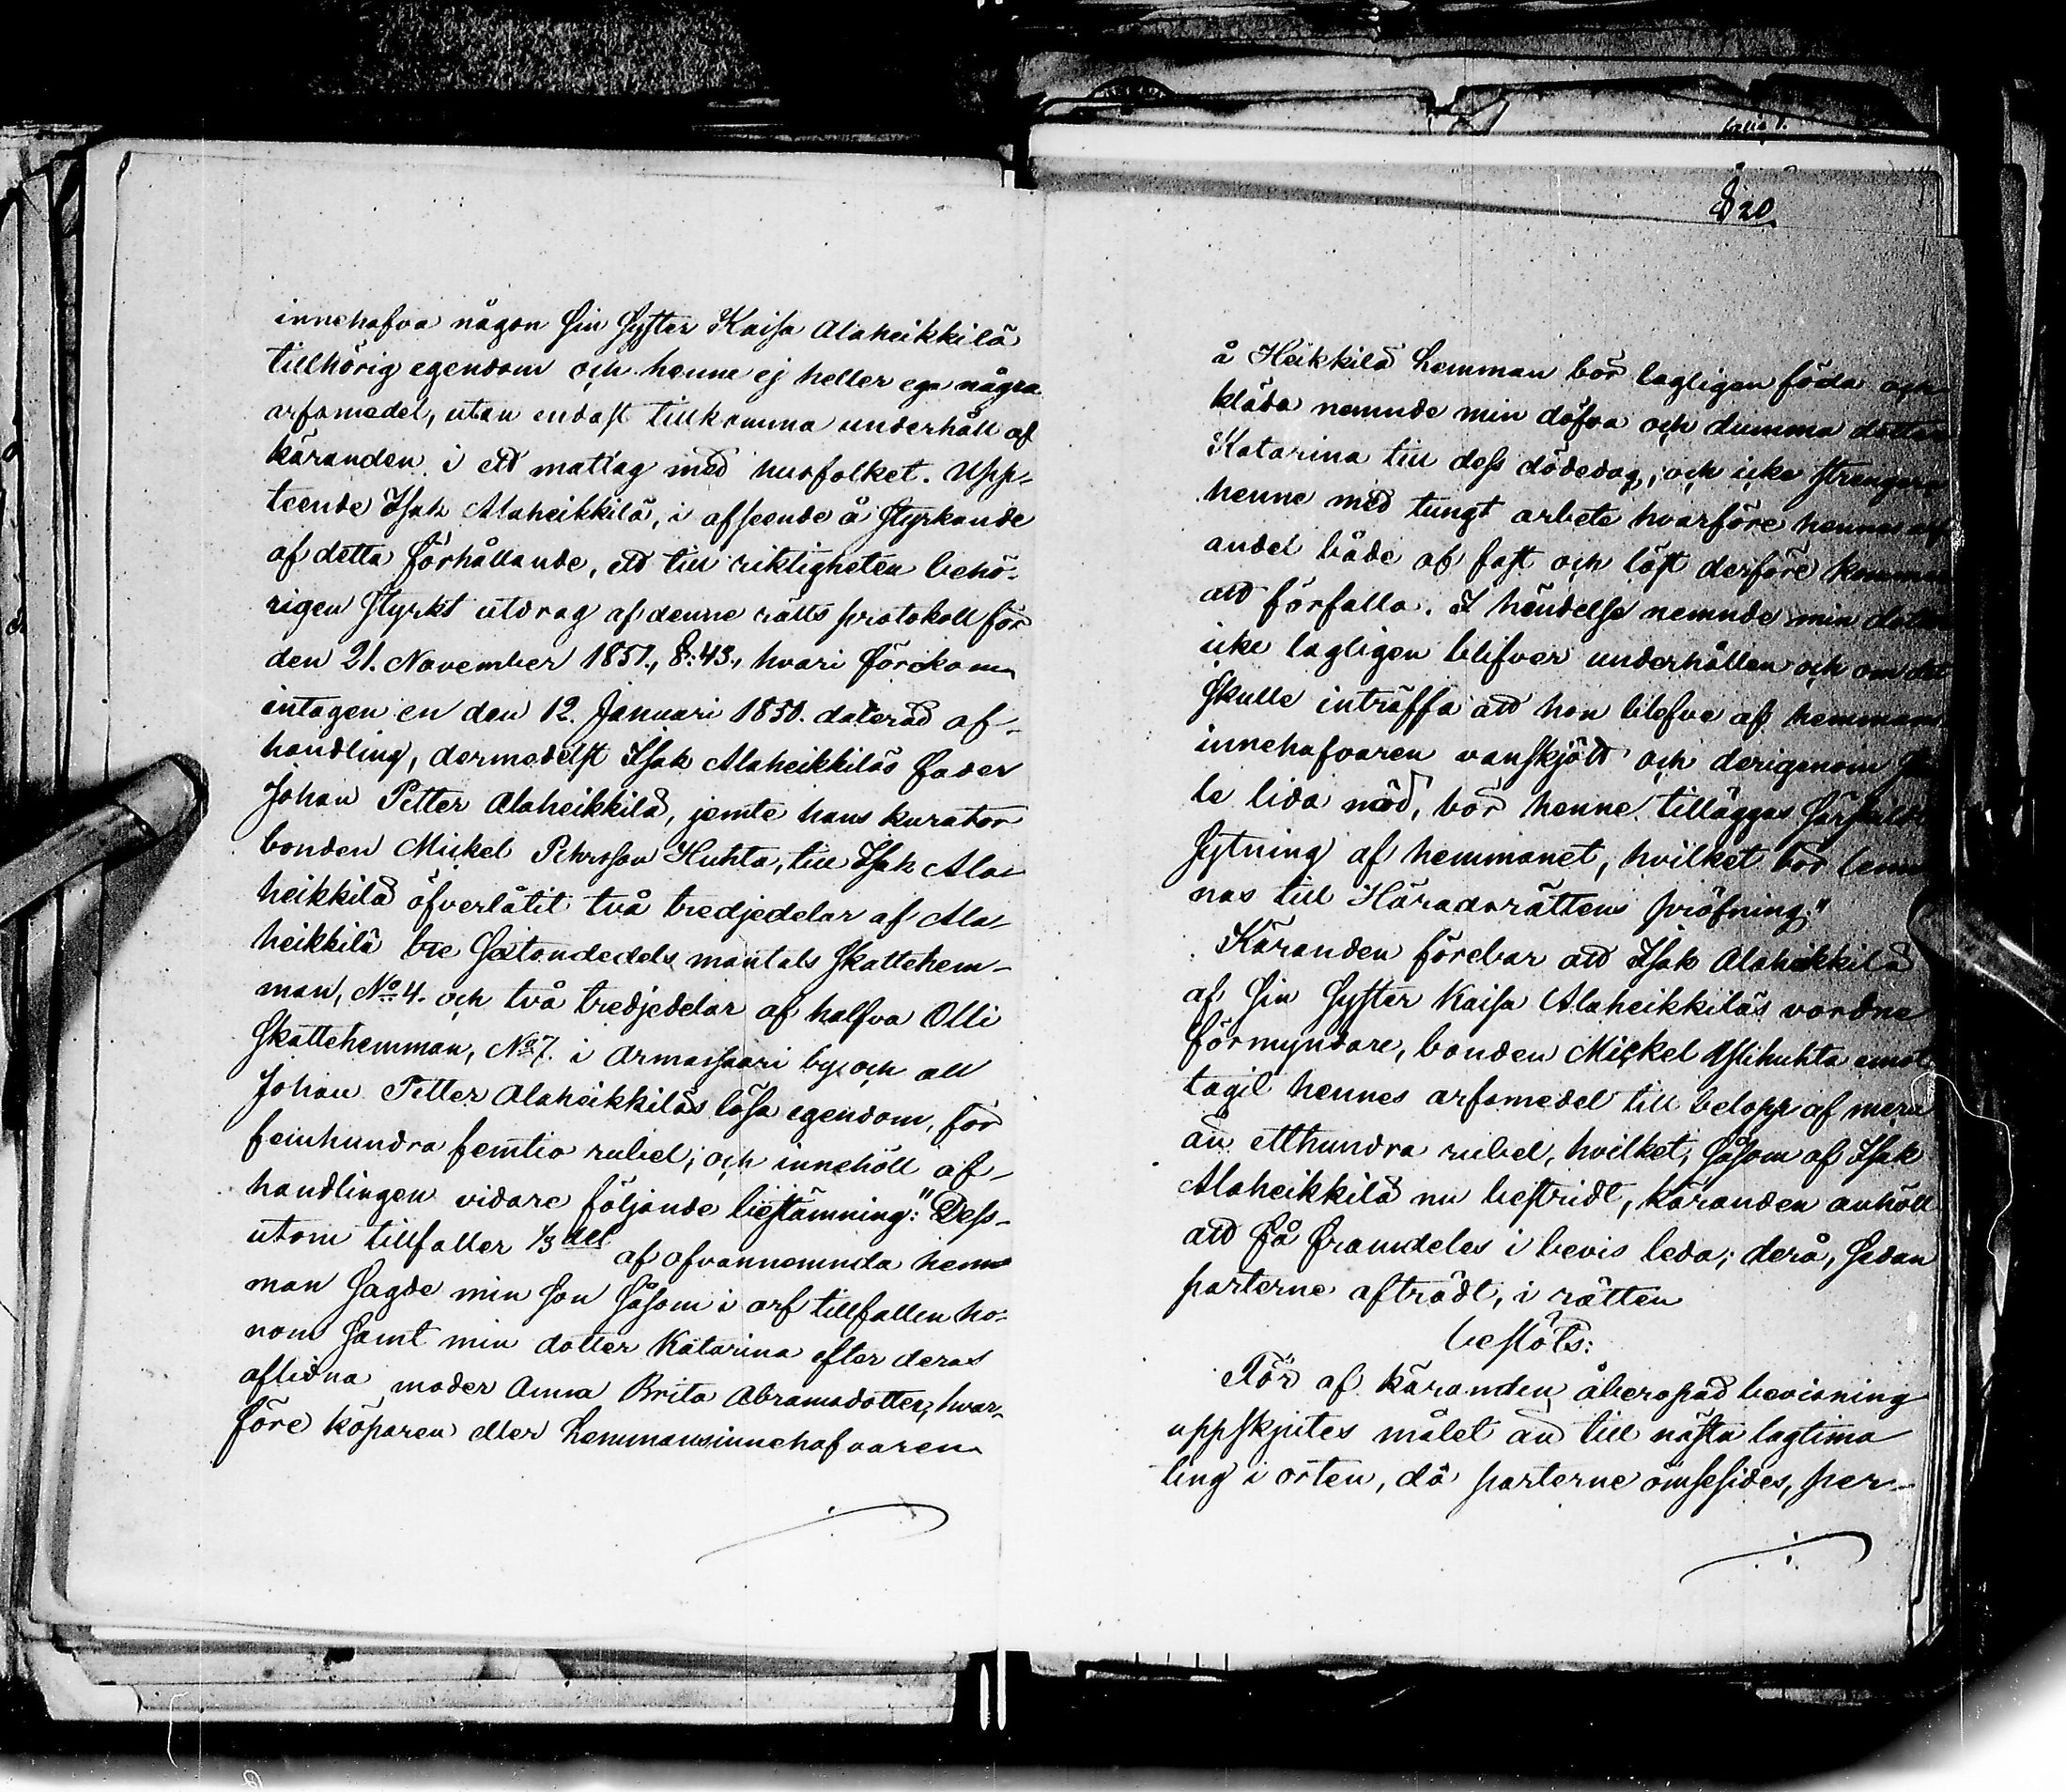 innehafva någon sin syster Kaisa Alaheikkilä
tillhörig egendom och henne ej heller ega några
arfsmedel, utan endast tillkomma underhåll af
käranden i ett matlag med husfolket. Upp-
teende Isak Alaheikkilä, i afseende å styrkande
af detta förhållande, ett till riktigheten behö-
rigen styrkt utdrag af denne rätts protokoll för
den 21. November 1851., §. 43., hvari förekom
intagen en den 12. Januari 1850. daterad af-
handling, dermedelst Isak Alaheikkiläs fader
Johan Petter Alaheikkilä, jemte hans kurator
bonden Mickel Pehrsson Huhta, till Isak Ala-
heikkilä öfverlåtit två tredjedelar af Ala-
heikkilä tre sextondedels mantals skattehem-
man, No 4. och två tredjedelar af halfva Olli
skattehemman, No 7. i Armassaari by och all
Johan Petter Alaheikkiläs lösa egendom, för
femhundra femtio rubel; och innehöll af-
handlingen vidare följande bestämning: "Dess-
utom tillfaller 1/3 del af ofvannemnda hem-
man sagde min son såsom i arf tillfallen ho-
nom samt min dotter Katarina efter deras
aflidna moder Anna Brita Abramsdotter, hvar-
före köparen eller hemmansinnehafvaren
§ 20
å Heikkilä hemman bör lagligen föda och
kläda nemnde min döfva och dumma dotter
Katarina till dess dödedag, och icke strengara
henne med tungt arbete hvarföre hennes arf
andel både af fast och löst derföre kommer
att förfalla. I händelse nemnde min dotter
icke lagligen blifver underhållen och om det
skulle inträffa att hon blefve af hemmans
innehafvaren vanskjött och derigenom skul
le lida nöd, bör henne tilläggas särskild
sytning af hemmanet, hvilket bör lem
nas till Häradsrättens pröfning."
Käranden förebar att Isak Alaheikkilä
af sin syster Kaisa Alaheikkiläs vordne
förmyndare, bonden Mickel Ylihuhta emot
tagit hennes arfsmedel till belopp af mera
än etthundra rubel, hvilket, såsom af Isak
Alaheikkilä nu bestridt, käranden anhöll
att få framdeles i bevis leda; derå, sedan
parterne afträdt, i rätten
beslöts:
För af käranden åberopad bevisning
uppskjutes målet an till nästa lagtima
ting i orten, då parterne ömsesides, per-